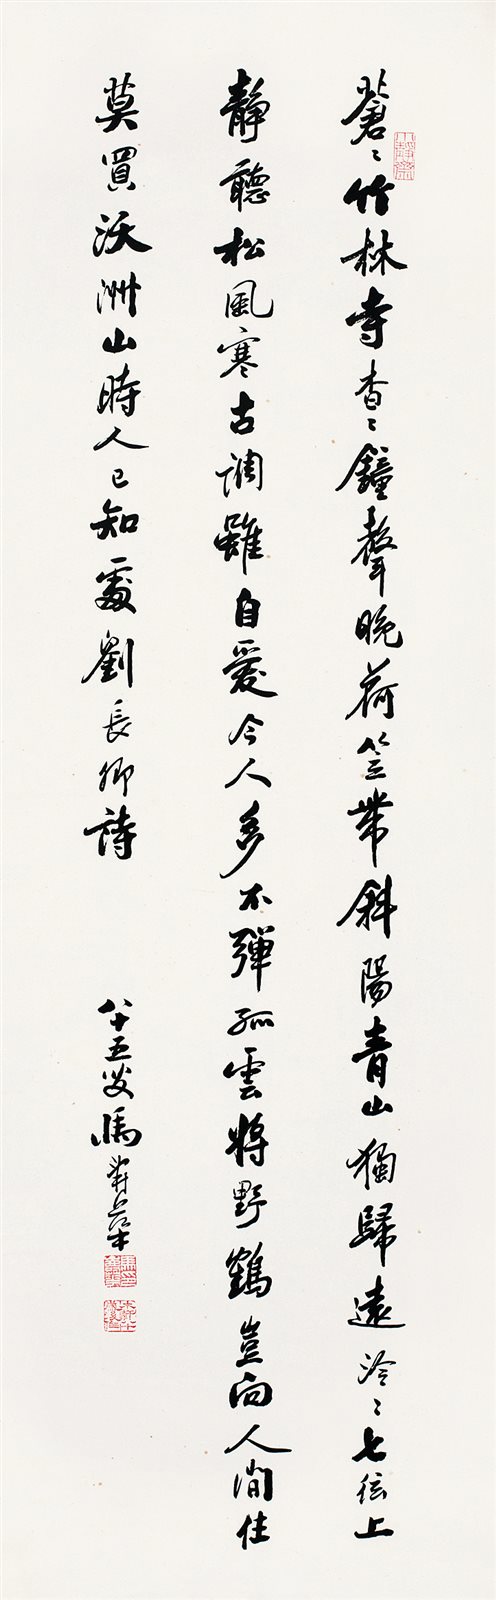 蒼〻竹林寺杳〻鐘聲晚荷笠帶斜陽青山獨歸遠泠〻七弦上
靜聽松風寒古調雖自愛今人多不彈孤雲將野鶴豈向人間住
莫買沃洲山時人已知處劉長卿詩
八十五叟馮